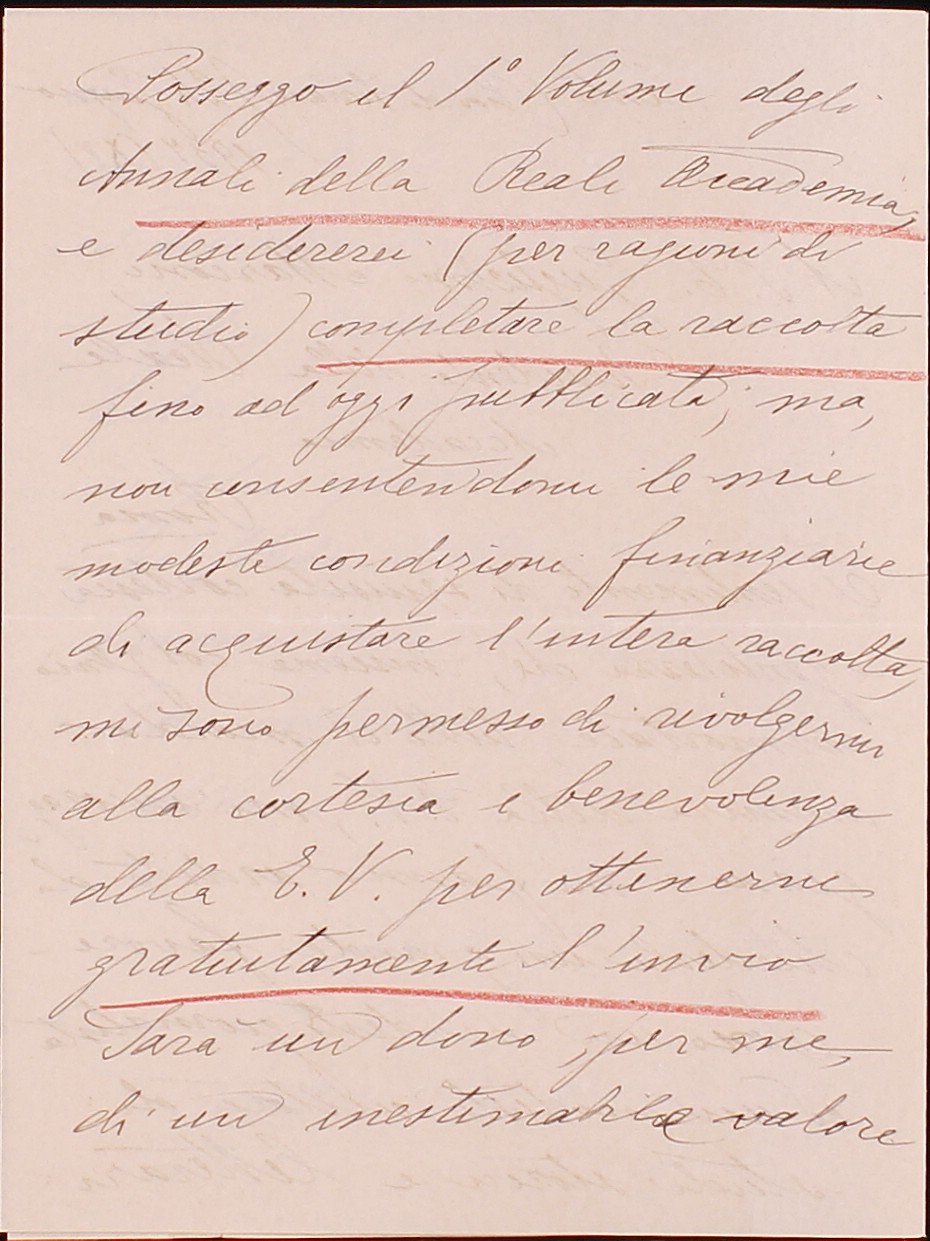 Posseggo il 1° Volume degli
Annali della Reale Accademia,
e desidererei (per ragioni di
studio) completare la raccolta
fino ad oggi pubblicata; ma,
non consentendomi le mie
modeste condizioni finanziarie
di acquistare l'intera raccolta,
mi sono permesso di rivolgermi
alla cortesia e benevolenza
della E. V. per ottenerne
gratuitamente l'invio
Sarà un dono, per me,
di un inestimabile valore